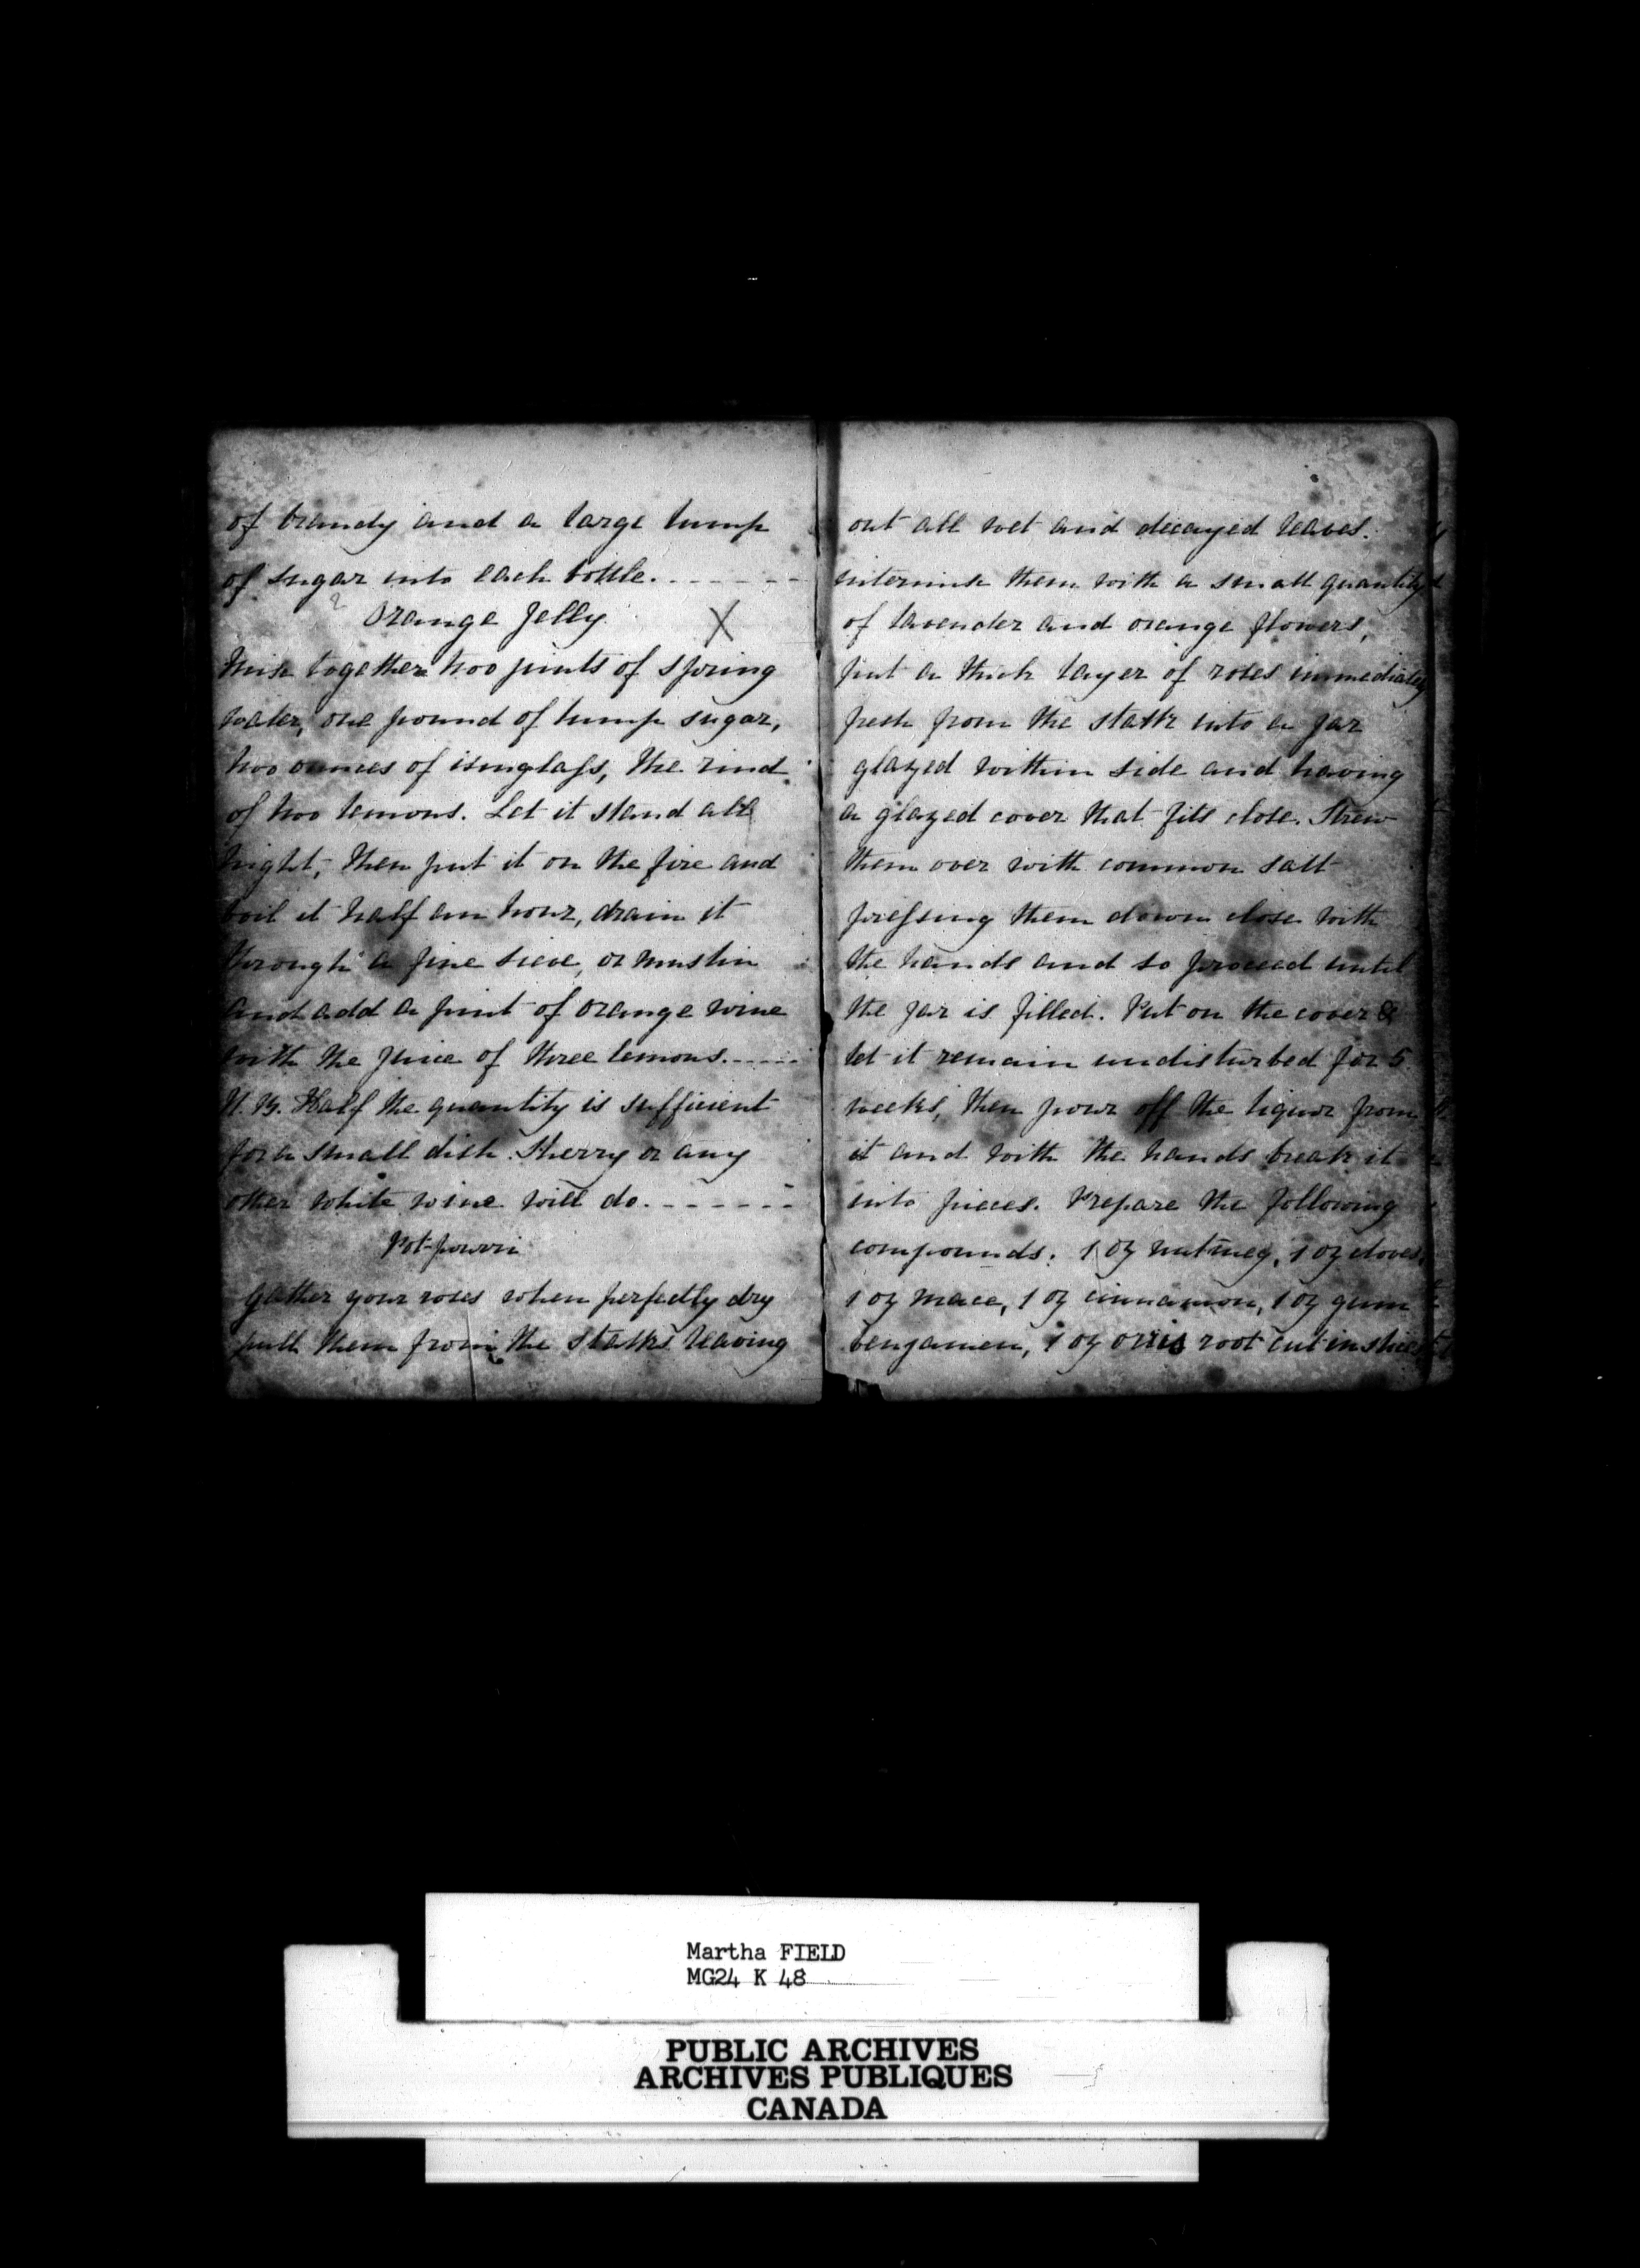 of brandy and a large lump
of sugar into each bottle.------
Orange Jelly X
Mix together two pints of spring
water, one pound of lump sugar,
two ounces of isinglass, the rind
of two lemons. Let it stand all
night, then put it on the fire and
boil it half an hour, drain it
through a fine sieve, or muslin
and add a pint of orange wine
with the juice of three lemons.-----
N.B. Half the quantity is sufficient
for a small dish. Sherry or any
other white wine will do.------
Pot-pourri
Gather your roses when perfectly dry
pull them from the stalks leaving
out all wet and decayed leaves.
intermix them with a small quantity
of lavender and orange flowers,
put a thick layer of roses immediately
fresh from the stalk into a jar
glazed within side and having
a glazed cover that fits close. Strew
them over with common salt
pressing them down close with
the hands and so proceed until
the jar is filled. Put on the cover &
let it remain undisturbed for 5
weeks, then pour off the liquor from
it and with the hands break it
into pieces. Prepare the following
compounds: 1 oz nutmeg, 1 oz cloves,
1 oz mace, 1 oz cinnamon, 1 oz gum
benjamen, 1 oz orris root cut in slices
Martha FIELD
MG24 K 48
PUBLIC ARCHIVES
ARCHIVES PUBLIQUES
CANADA